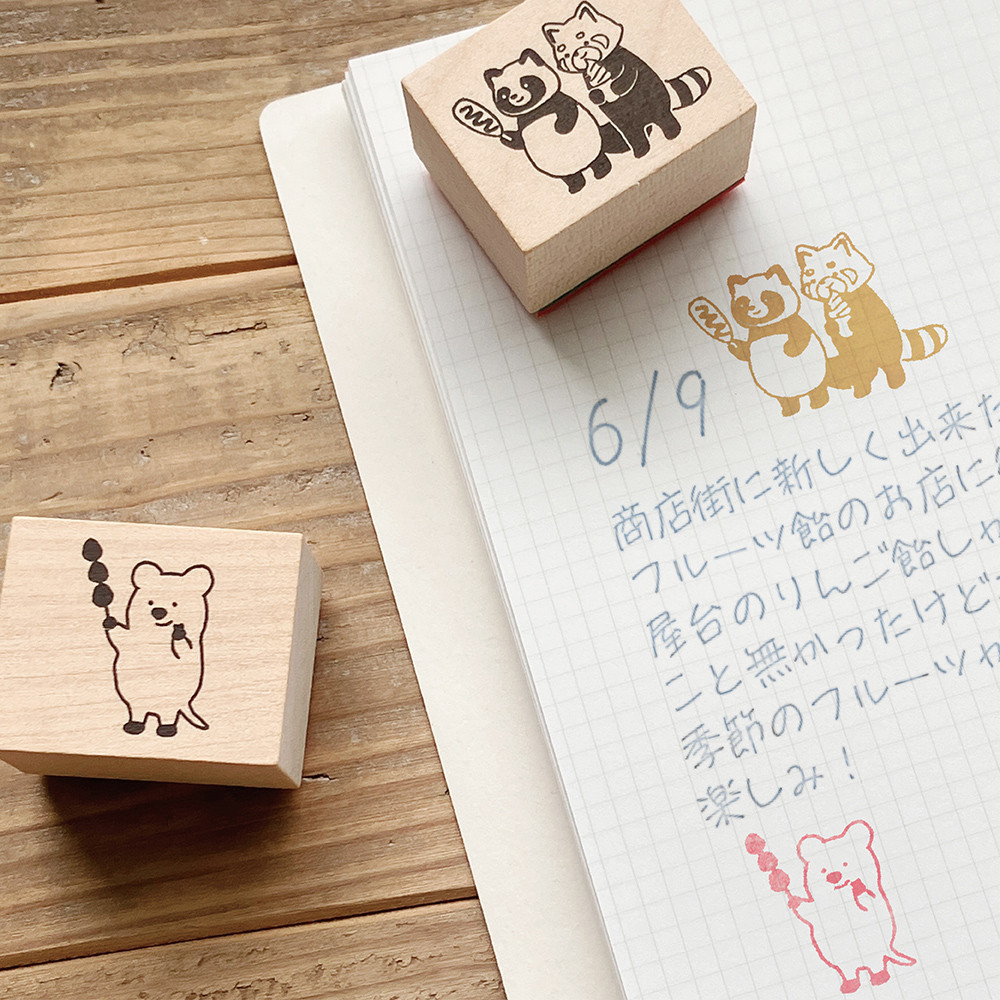 6/9
商店街に新しく出来た
フルーツ飴のお店に
屋台のりんご飴しか
こと無かったけど
季節のフルーツが
楽しみ！